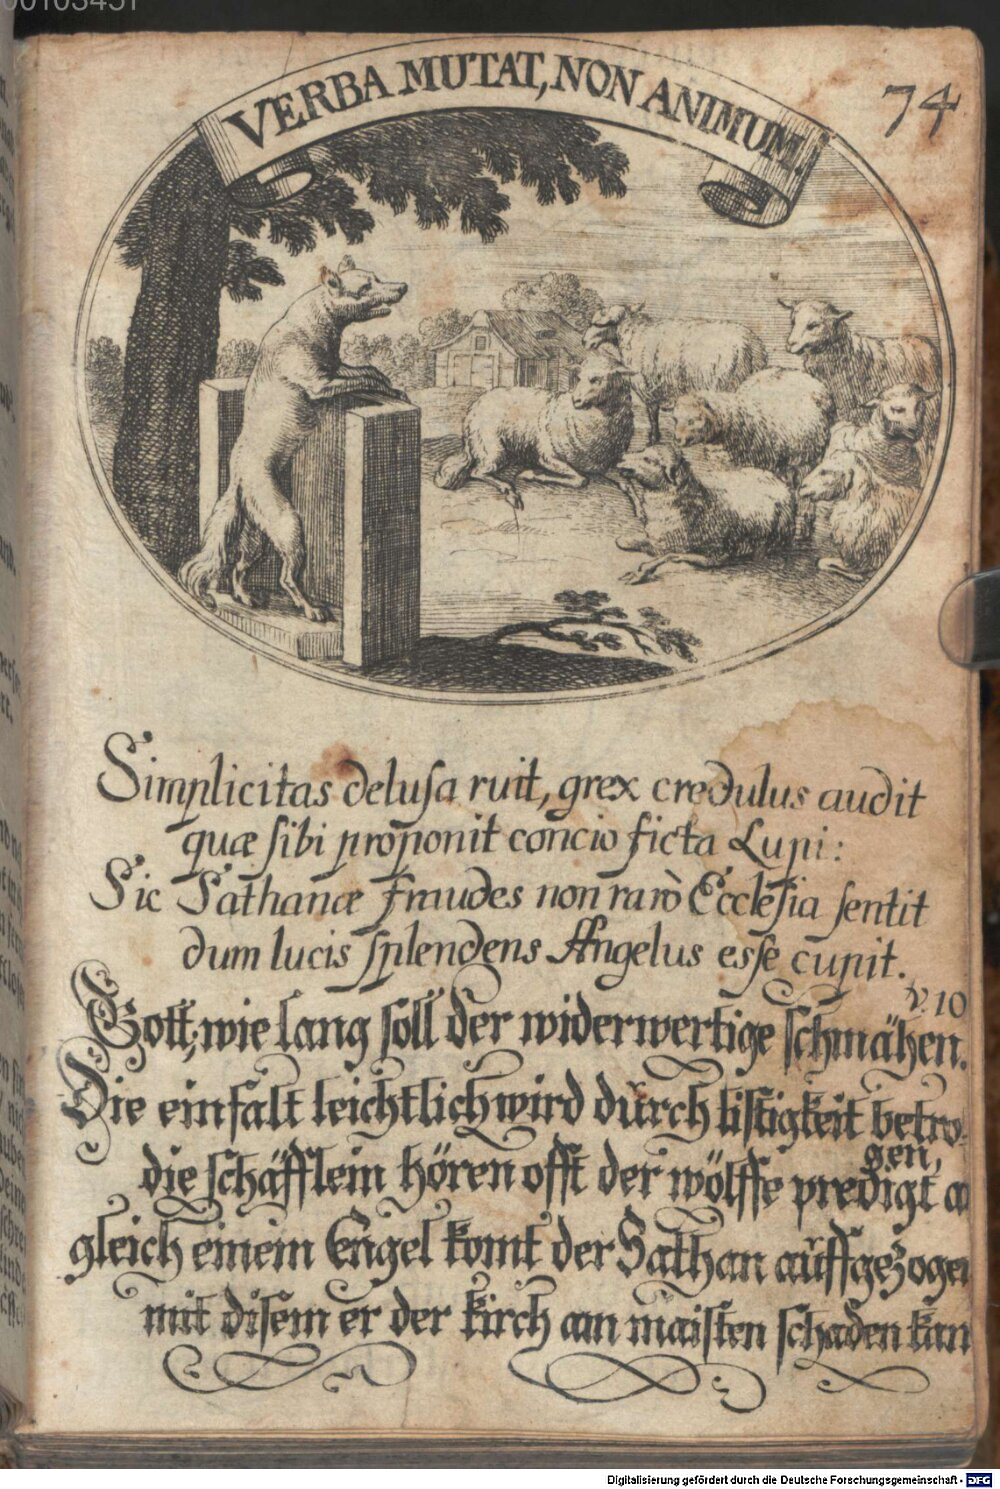 00103451
VERBA MUTAT, NON ANIMUM.
74
Simplicitas delusa ruit, grex credulus audit
quæ sibi proponit concio ficta Lupi:
Sic Sathanæ fraudes non rarò Ecclesia sentit
dum lucis splendens Angelus esse cupit.
v. 10
Gott, wie lang soll der widerwertige schmähen.
Die einfalt leichtlich wird durch listigkeit betro-
gen,
die schäfflein hören offt der wölffe predigt a
gleich einem Engel komt der Sathan auffgezogen
mit disem er der kirch am maisten schaden kan
Digitalisierung gefördert durch die Deutsche Forschungsgemeinschaft - DFG